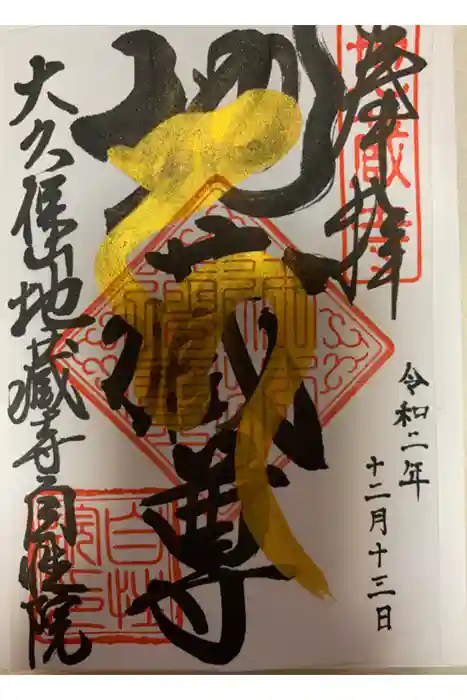 奉拝
地蔵寺
令和二年
十二月十三日
地蔵尊
大久保山地蔵寺自性院